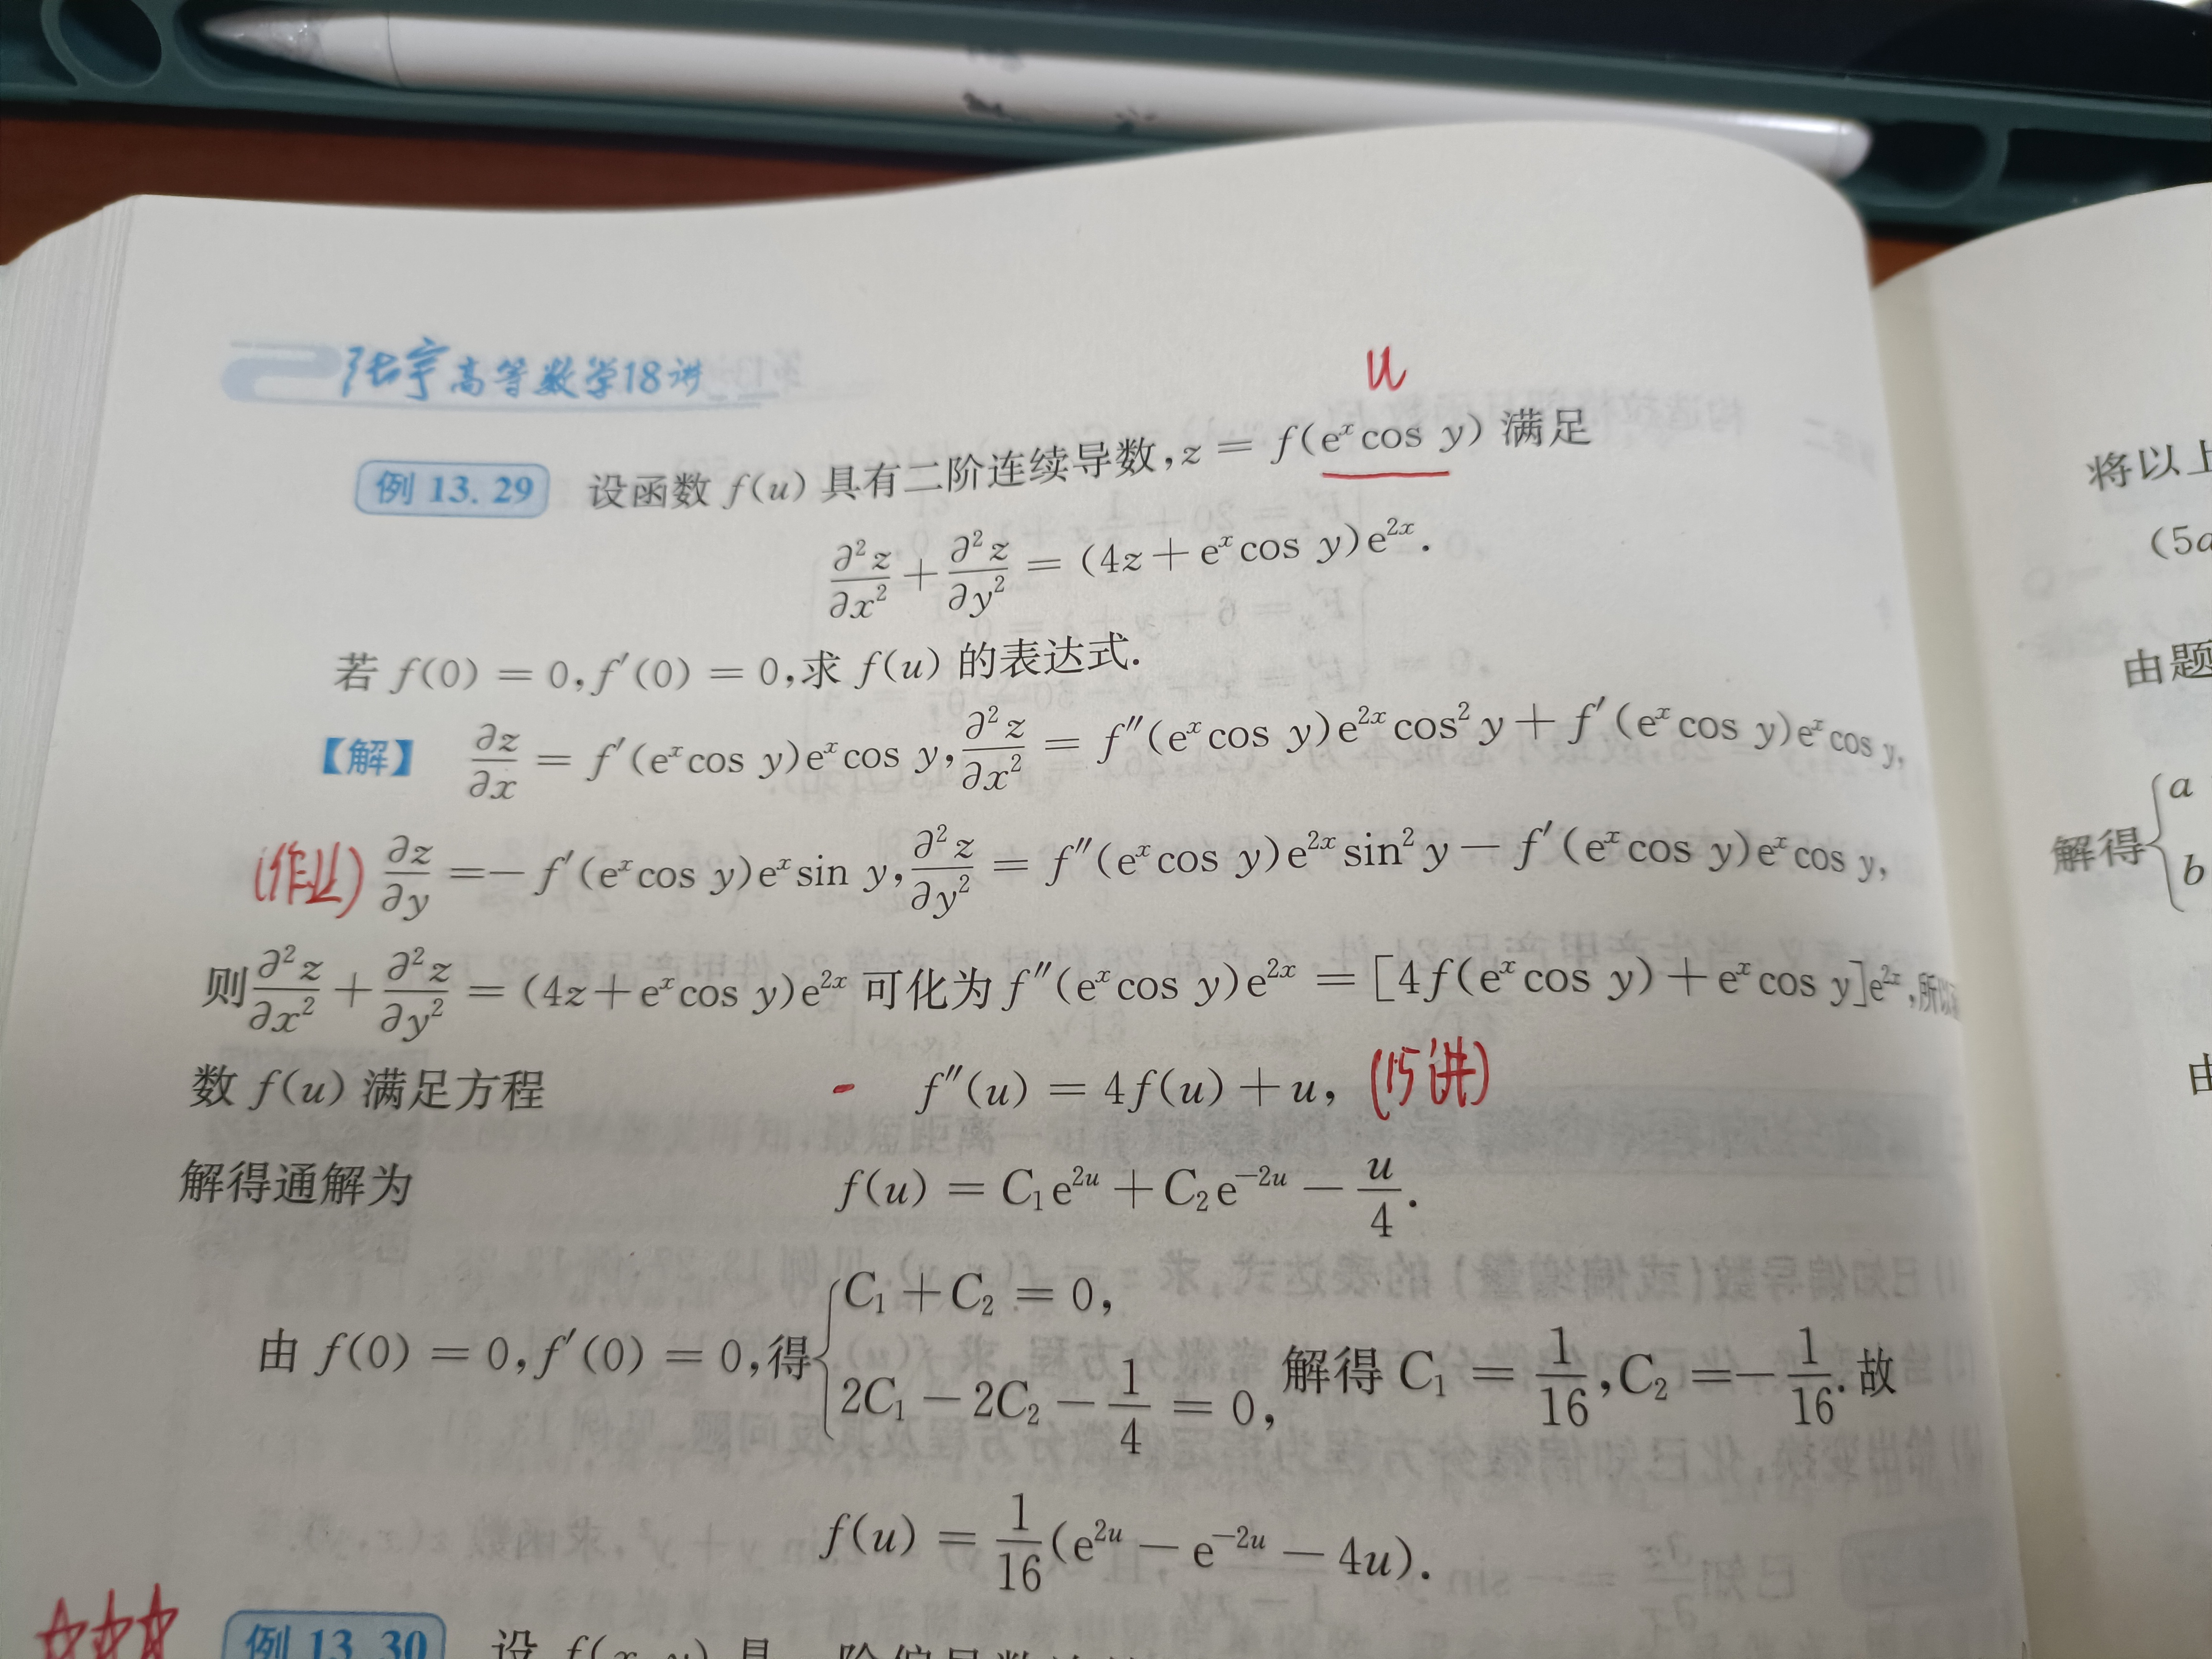 张宇高等数学18讲
u
例 13.29 设函数 f(u) 具有二阶连续导数, z = f(eˣcos y) 满足
∂²z/∂x² + ∂²z/∂y² = (4z + eˣcos y)e²ˣ.
若 f(0) = 0, f′(0) = 0, 求 f(u) 的表达式.
【解】 ∂z/∂x = f′(eˣcos y)eˣcos y, ∂²z/∂x² = f″(eˣcos y)e²ˣcos²y + f′(eˣcos y)eˣcos y,
∂z/∂y = − f′(eˣcos y)eˣsin y, ∂²z/∂y² = f″(eˣcos y)e²ˣsin²y − f′(eˣcos y)eˣcos y,
则 ∂²z/∂x² + ∂²z/∂y² = (4z + eˣcos y)e²ˣ 可化为 f″(eˣcos y)e²ˣ = [4f(eˣcos y) + eˣcos y]e²ˣ, 所以
数 f(u) 满足方程
f″(u) = 4f(u) + u, (15讲)
解得通解为 f(u) = C₁e²ᵘ + C₂e⁻²ᵘ − u/4.
由 f(0) = 0, f′(0) = 0, 得 { C₁ + C₂ = 0, 2C₁ − 2C₂ − 1/4 = 0, 解得 C₁ = 1/16, C₂ = − 1/16. 故
f(u) = 1/16(e²ᵘ − e⁻²ᵘ − 4u).
例 13.30 设 f(x, y) 具
将以上
(5a
由题
解得 { a
b
由